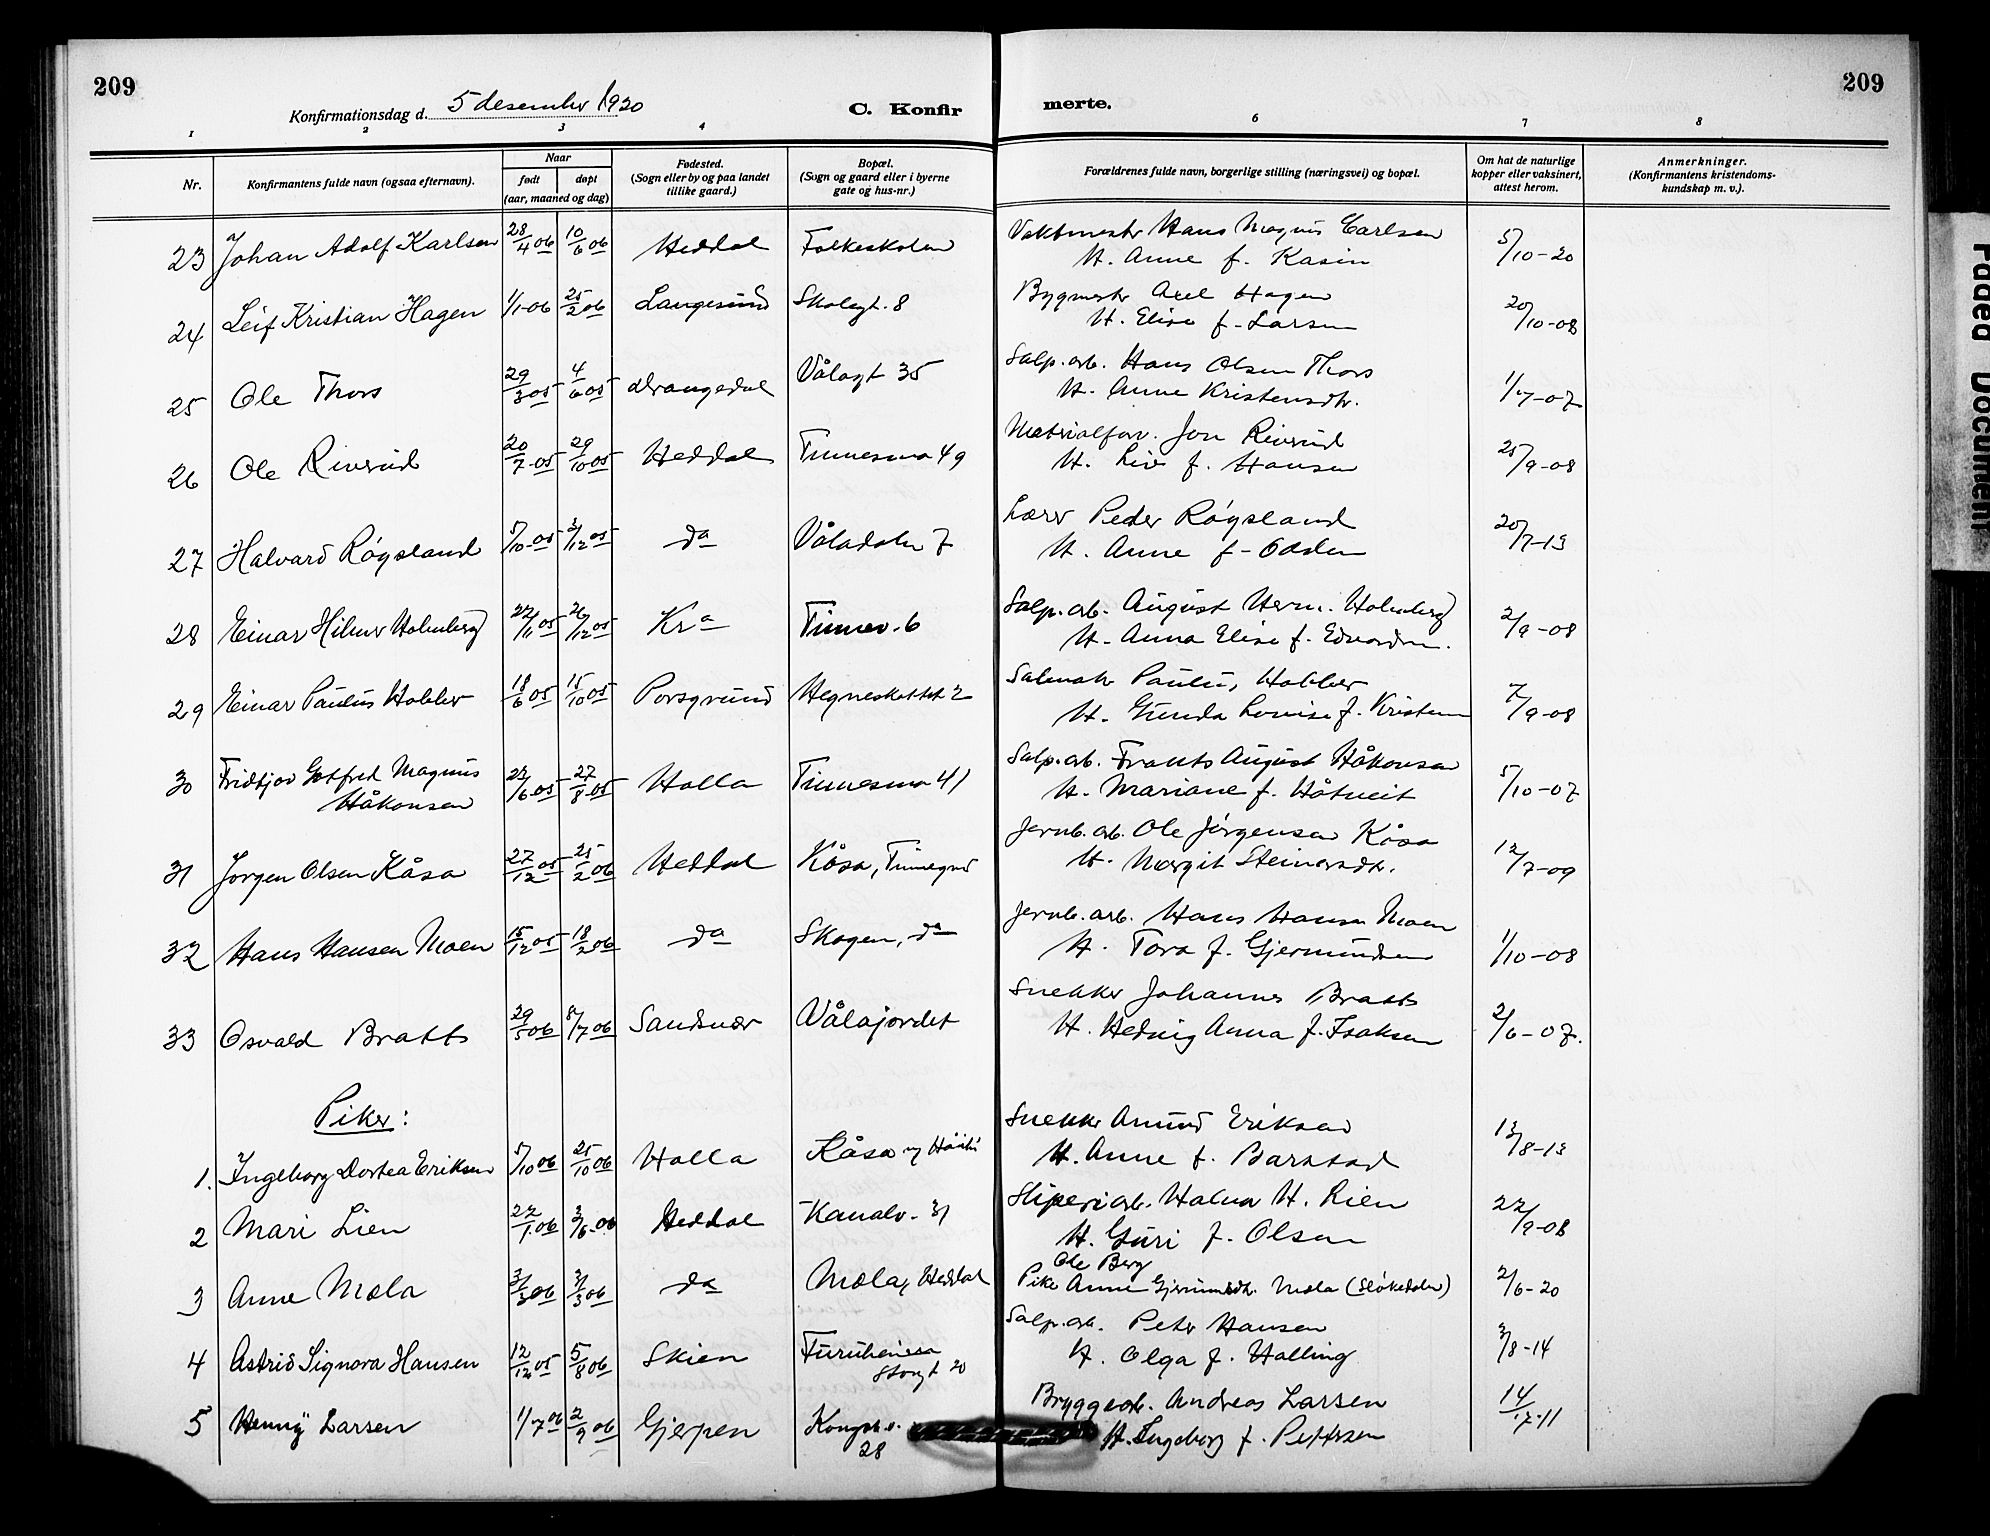 209
209
Konfirmationsdag d. 5 desember 1920
C. Konfir
merte.
1 2 3 4 6 7 8
Nr.
Konfirmantens fulde navn (ogsaa efternavn).
Naar
født døpt
(aar, maaned og dag)
Fødested.
(Sogn eller by og paa landet
tillike gaard.)
Bopæl.
(Sogn og gaard eller i byerne
gate og hus-nr.)
Forældrenes fulde navn, borgerlige stilling (næringsvei) og bopæl.
Om hat de naturlige
kopper eller vaksinert,
attest herom.
Anmerkninger.
(Konfirmantens kristendoms-
kundskap m. v.).
23 Johan Adolf Karlsen 28/4 06 10/6 06 Heddal Folkeskolen Vaktmestr Hans Magnus Carlsen 5/10-20
H. Anne f. Kasin
24 Leif Kristian Hagen 1/1-06 25/2 06 Langesund Skolegt. 8 Bygmestr Axel Hagen 20/10-08
H. Elise f. Larsen
25 Ole Thors 29/3 05 4/6 05 Drangedal Vålagt 35 Salp. arb. Hans Olsen Thors 1/7-07
H. Anne Kristensdtr.
26 Ole Riverud 20/7-05 29/10 05 Heddal Tinnesmo 49 Materialforv. Jon Riverud 25/9-08
H. Live f. Hansen
27 Halvard Røgsland 5/10-05 3/12 05 da Våladalen 7 Lærer Peder Røgsland 20/7-13
H. Anne f. Odden
28 Einar Hilmer Holmberg 22/11 05 26/12 05 Kra Tinnev. 6 Salp. arb. August Herm. Holmberg 2/9-08
H. Anna Elise f. Edvardsen.
29 Einar Paulus Hobber 18/6 05 15/10 05 Porsgrund Hegneskottet 2 Salmak Paulus Hobber 7/9-08
H. Gunda Lovise f. Kristensen
30 Fridtjov Gotfred Magnus 23/6-05 27/8 05 Holla Tinnesmo 41 Salp. arb. Frants August Håkonsen 5/10-07
Håkonsen H. Mariane f. Håtveit
31 Jørgen Olsen Kåsa 27/12 05 25/2 06 Heddal Kåsa, Tinnegrd Jernb. arb. Ole Jørgensen Kåsa 12/7-09
H. Margit Steinarsdtr.
32 Hans Hansen Moen 15/12 05 18/2 06 da Skogen, da Jernb. arb. Hans Hansen Moen 1/10-08
H. Tora f. Gjermundsen
33 Osvald Bratts 29/5 06 8/7 06 Sandsvær Vålajordet Snekker Johannes Bratts 2/6-07.
H. Hedvig Anna f. Isaksen
Piker:
1. Ingeborg Dortea Eriksen 5/10 06 25/10 06 Holla Kåsa Snekker Amund Eriksen 13/8-13
H. Anne f. Barstad
2 Mari Lien 22/1 06 3/6-06 Heddal Kanalv. 31 Sliperiarb. Halvor H. Lien 22/9-08
H. Guri f. Olsen
Ole Berg
3 Anne Mæla 3/3 06 3/3 06 da Mæla, Heddal Pike Anne Gjermundsdtr. Mæla (Sløkedalen) 2/6-20
4 Astrid Signora Hansen 12/12 05 5/8 06 Skien Furuheim Salp. arb. Peter Hansen 3/8-14
Storgt 20 H. Olga f. Halling
5 Henny Larsen 1/7 06 2/9 06 Gjerpen Kongsb. v. Bryggearb. Andreas Larsen 14/7-11
28 H. Ingeborg f. Pettersen
Faded Document